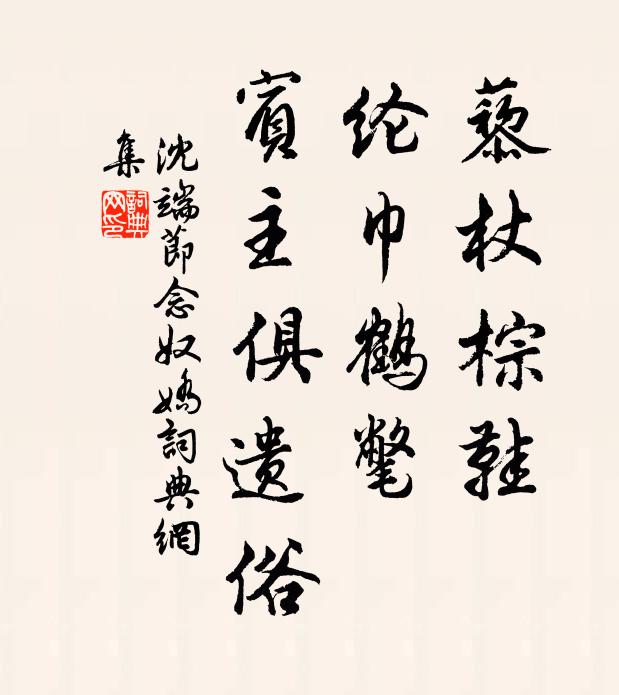 藜杖棕鞋
纶巾鹤氅
宾主俱遗俗
沈端節念奴嬌詞典網
集
詞典網印